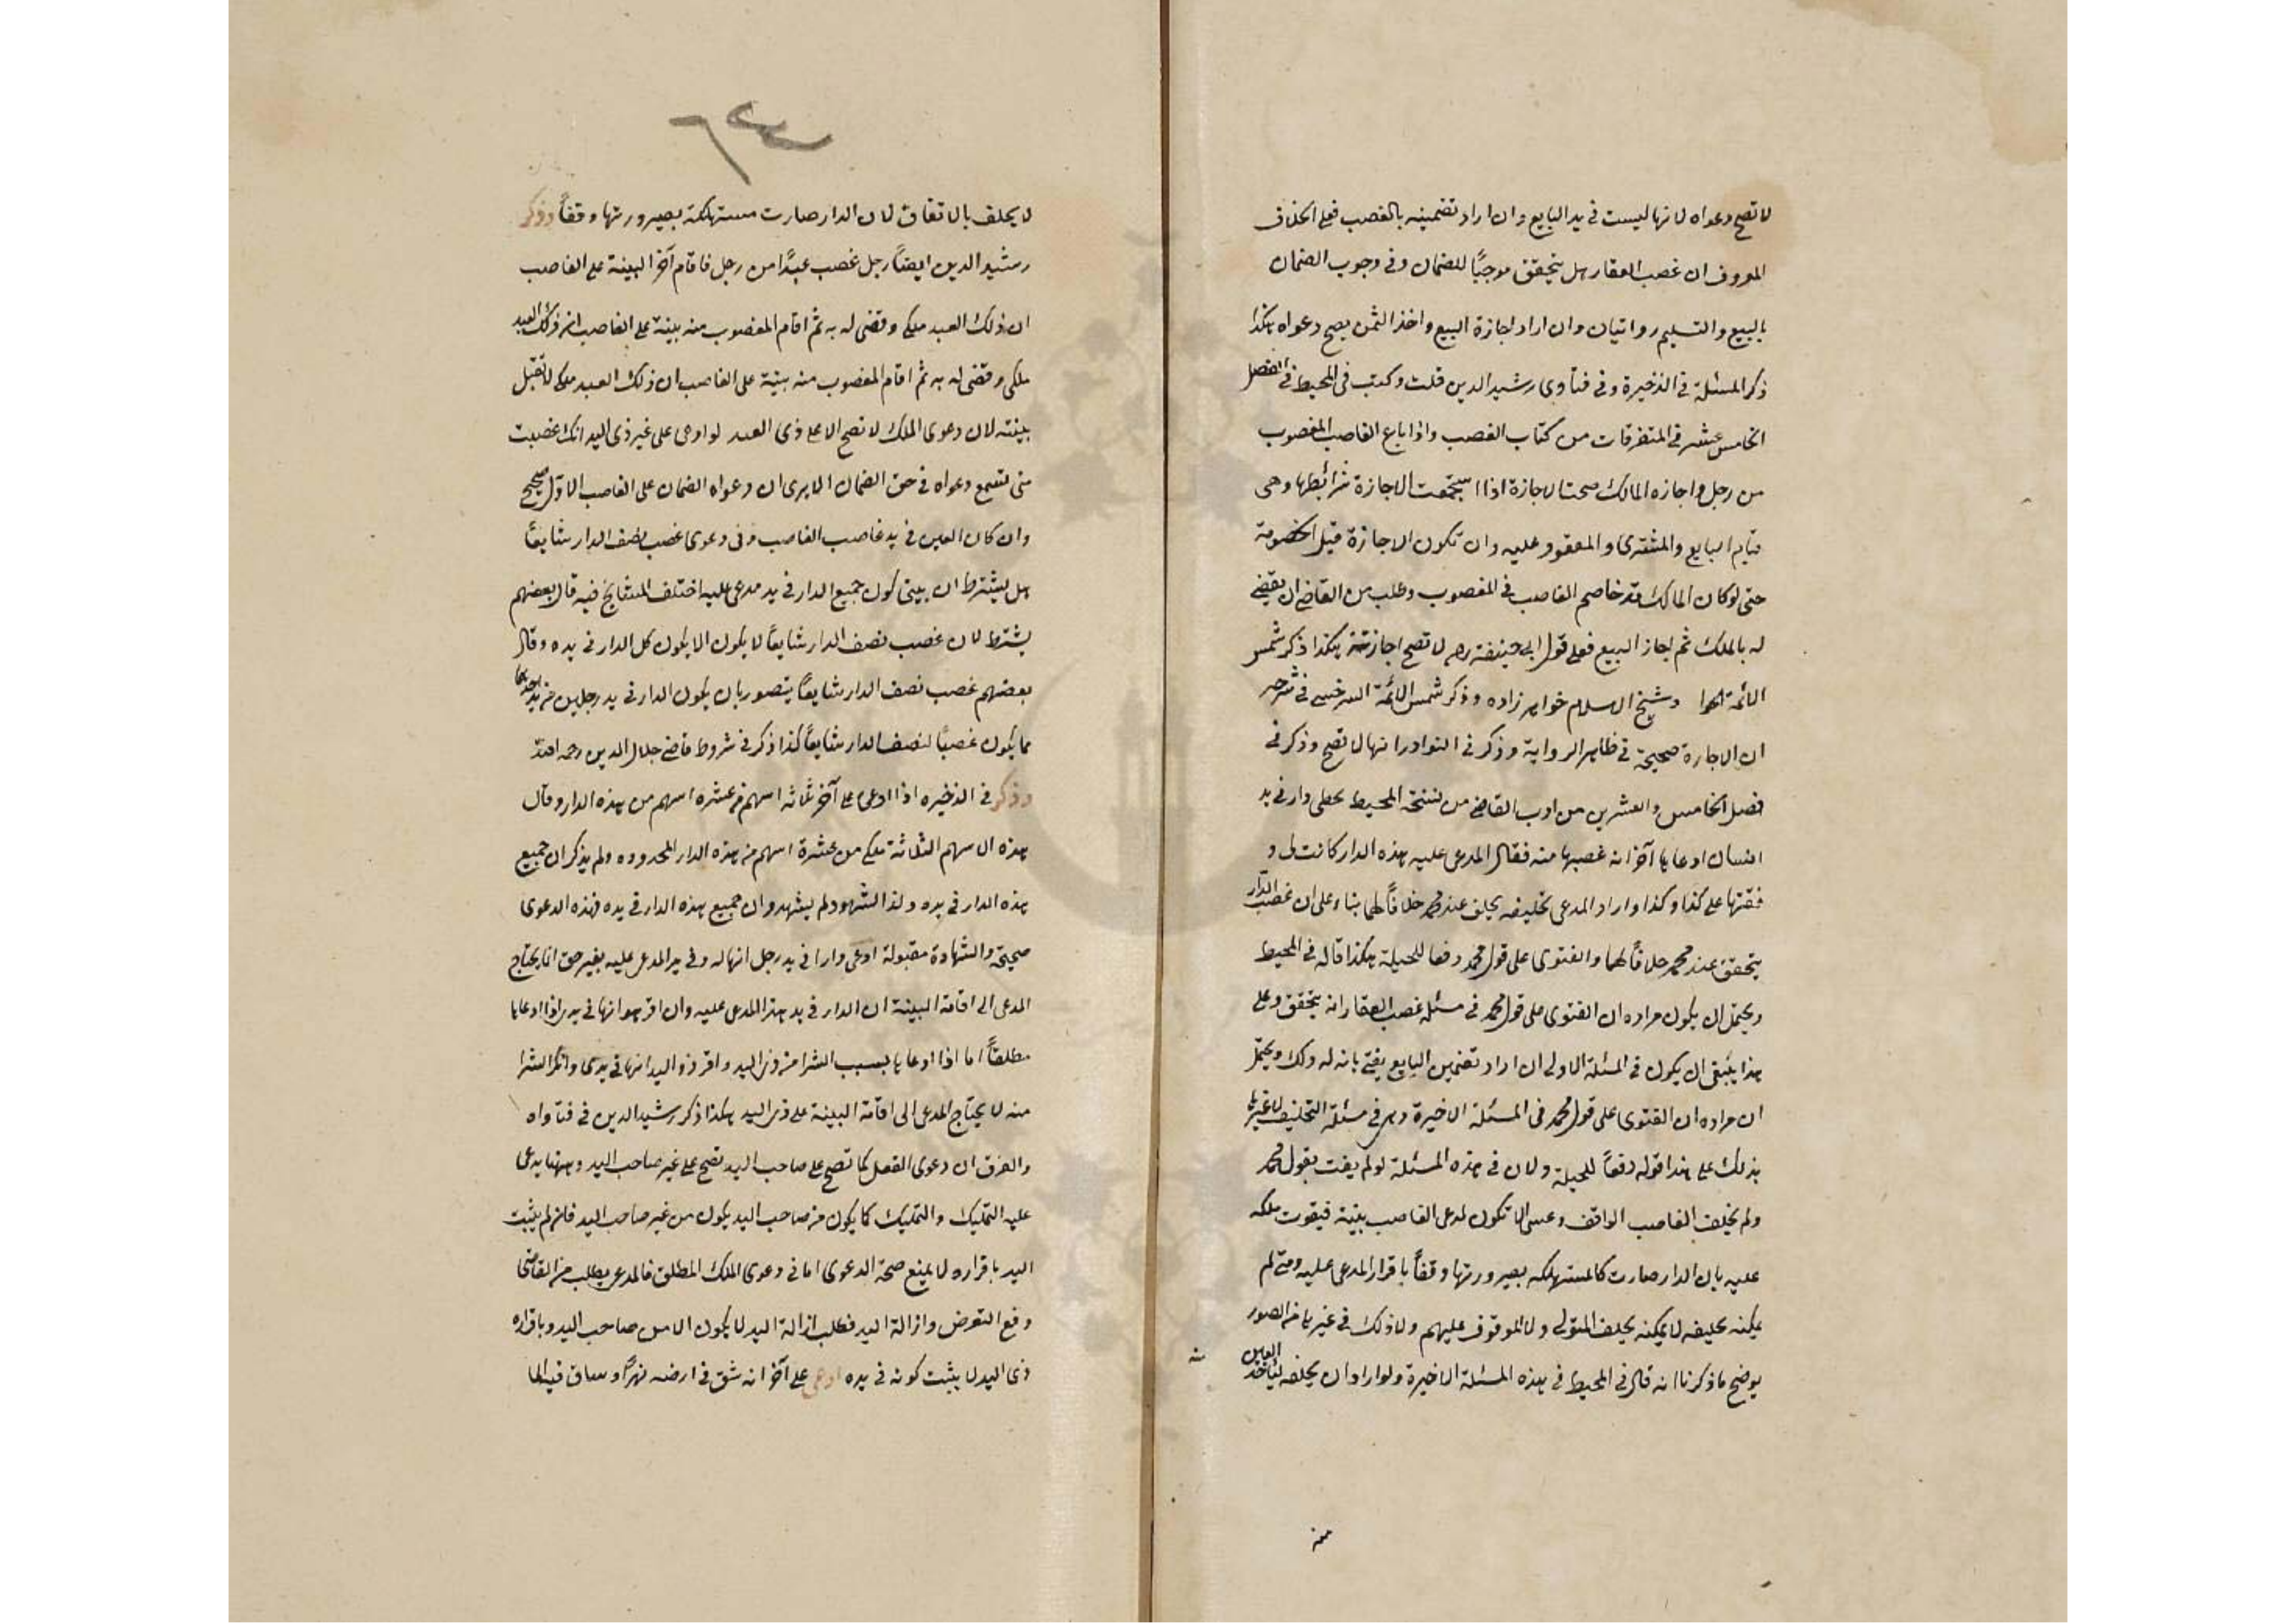 لا تصح دعواه لانها ليست في يد البايع وان اراد تضمينه بالغصب فعلى الخلاف
المعروف ان غصب العقار هل يتحقق موجبًا للضمان وفي وجوب الضمان
بالبيع والتسليم روايتان وان اراد اجازة البيع واخذ الثمن يصح دعواه هكذا
ذكر المسئلة في الذخيرة وفي فتاوى رشيد الدين قلت وكتب في المحيط في الفصل
الخامس عشر في المتفرقات من كتاب الغصب واذا باع الغاصب المغصوب
من رجل واجازه المالك صحت الاجازة اذا استجمعت الاجازة شرائطها وهى
قيام البايع والمشترى والمعقود عليه وان تكون الاجازة قبل الخصومة
حتى لو كان المالك قد خاصم الغاصب في المغصوب وطلب من القاضى ان يقضى
له بالملك ثم اجاز البيع فعلى قول ابى حنيفة رح لا تصح اجازته هكذا ذكر شمس
الائمة الحلوا وشيخ الاسلام خواهر زاده وذكر شمس الائمة السرخسى في شرحه
ان الاجازة صحيحة في ظاهر الرواية وذكر في النوادر انها لا تصح وذكر في
فصل الخامس والعشرين من ادب القاضى من نسخة المحيط بخطى دار في يد
انسان ادعاها آخر انه غصبها منه فقال المدعى عليه هذه الدار كانت لى و
فقتها على كذا وكذا واراد المدعى تحليفه يحلف عند محمد خلافًا لهما بناء على ان غصب الدار
يتحقق عند محمد خلافًا لهما والفتوى على قول محمد دفعا للحيلة هكذا قاله في المحيط
ويحتمل ان يكون مراده ان الفتوى على قول محمد في مسئلة غصب العقار انه يتحقق وعلى
هذا ينبغى ان يكون في المسئلة الاولى ان اراد تضمين البايع يفتى بانه له ذلك ويحتمل
ان مراده ان الفتوى على قول محمد في المسئلة الاخيرة وهى في مسئلة التحليف لا غيرها
بذلك على هذا قوله دفعًا للحيلة ولان في هذه المسئلة لو لم يفت بقول محمد
ولم يحلف الغاصب الواقف وعسى الا تكون لمدعى الغاصب بينة فيفوت ملكه
عليه بان الدار صارت كالمستهلكه بصيرورتها وقفًا باقرار المدعى عليه ومتى لم
يمكنه تحليفه لا يمكنه يحلف المتولى ولا الموقوف عليهم ولا ذلك في غيرها من الصور
يوضح ما ذكرنا انه قال في المحيط في هذه المسئلة الاخيرة ولو اراد ان يحلفه ليأخذ العين
لا يحلف بالاتفاق لان الدار صارت مستهلكة بصيرورتها وقفًا وذكر
رشيد الدين ايضًا رجل غصب عبدًا من رجل فاقام آخر البينة على الغاصب
ان ذلك العبد ملكى وقضى له به ثم اقام المغصوب منه بينة على الغاصب ان ذلك العبد
ملكى وقضى له به ثم اقام المغصوب منه بينة على الغاصب ان ذلك العبد ملكى لا تقبل
بينته لان دعوى الملك لا تصح الا على ذى اليد لو ادعى على غير ذى اليد انك غصبت
منى تسمع دعواه في حق الضمان الا يرى ان دعواه الضمان على الغاصب الاول صحيح
وان كان العين في يد غاصب الغاصب وفى دعوى غصب نصف الدار شايعًا
هل يشترط ان يبين كون جميع الدار في يد مدعى عليه اختلف المشايخ فيه قال بعضهم
يشترط لان غصب نصف الدار شايعًا لا يكون الا بكون كل الدار في يده وقال
بعضهم غصب نصف الدار شايعًا يتصور بان يكون الدار في يد رجلين من يد احدهما
مما يكون غصبًا لنصف الدار شايعًا كذا ذكر في شروط قاضى جلال الدين رحمه الله
وذكر في الذخيره اذا ادعى على آخر ثلثه اسهم من عشره اسهم من هذه الدار وقال
هذه الاسهم الثلاثة ملكى من عشرة اسهم من هذه الدار المحدوده ولم يذكر ان جميع
هذه الدار في يده وكذا الشهود لم يشهدوا ان جميع هذه الدار في يده فهذه الدعوى
صحيحة والشهادة مقبولة ادعى دارا في يد رجل انها له وفى يد المدعى عليه بغير حق انما يحتاج
المدعى الى اقامة البينة ان الدار في يد هذا المدعى عليه وان اقر هو انها في يده اذا ادعاها
مطلقًا اما اذا ادعاها بسبب الشرا من ذى اليد واقر ذو اليد انها في يدى وانكر الشرا
منه لا يحتاج المدعى الى اقامة البينة على ذى اليد هكذا ذكر رشيد الدين في فتاواه
والفرق ان دعوى الفعل كما تصح على صاحب اليد تصح على غير صاحب اليد وههنا يدعى
عليه التمليك والتمليك كما يكون من صاحب اليد يكون من غير صاحب اليد فان لم يثبت
اليد باقراره لا يمنع صحة الدعوى اما في دعوى الملك المطلق فالمدعى يطلب من القاضى
دفع التعرض وازالة اليد فطلب ازالة اليد لا يكون الا من صاحب اليد وباقراره
ذى اليد لا يثبت كونه في يده ادعى على آخر انه شق في ارضه نهرًا وساق فيه الما